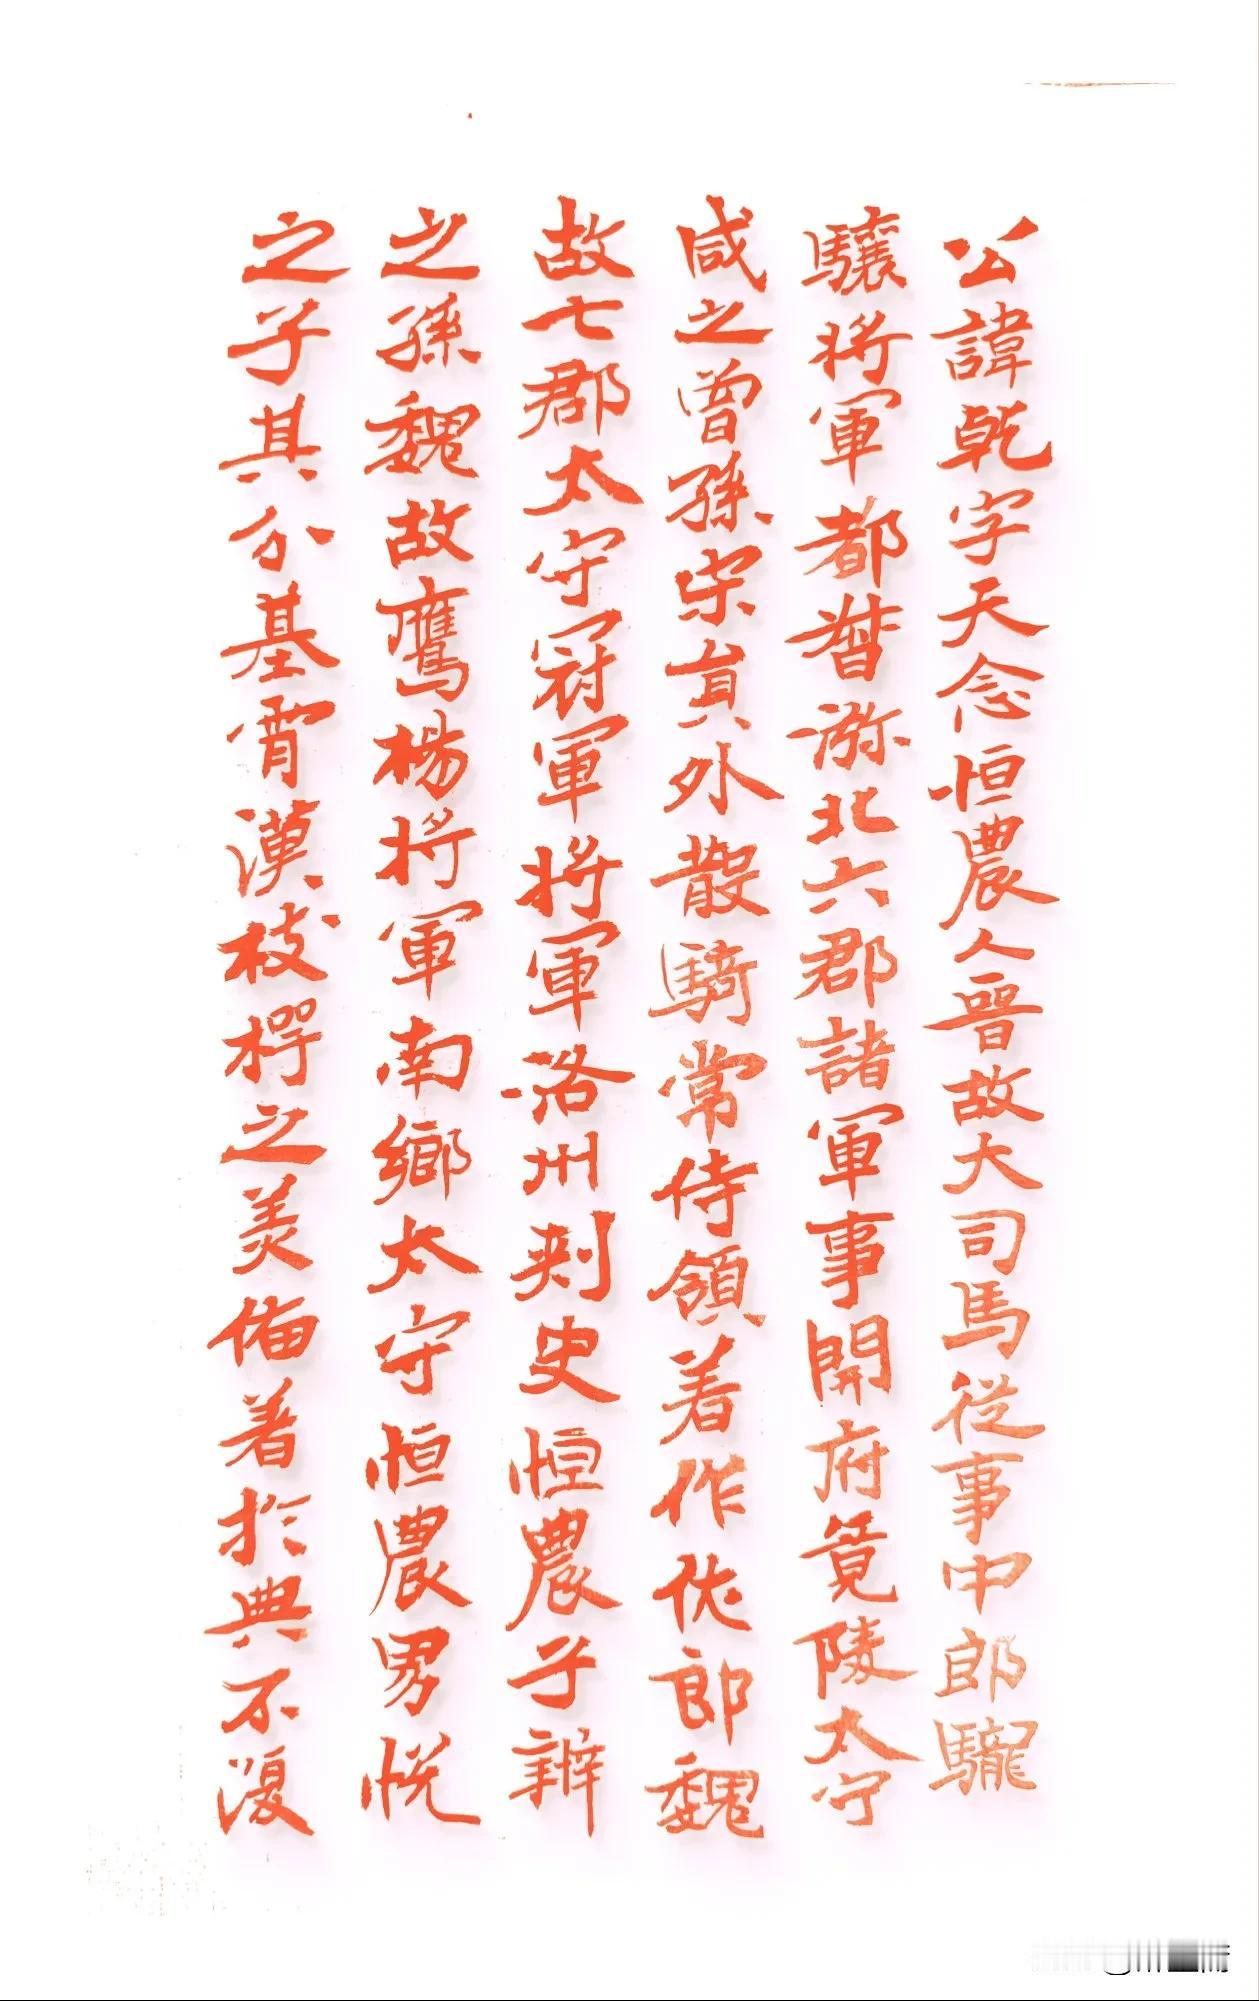 公諱乾字天念恒農人晉故大司馬從事中郎驪
驤將軍都督㳽北六郡諸軍事開府竟陵太守
咸之曾孫宋員外散騎常侍領著作佐郎魏
故七郡太守冠軍將軍洛州刾史恒農子辨
之孫魏故鷹楊將軍南鄉太守恒農男悦
之子其分基霄漢枝㮙之美俻著於典不復